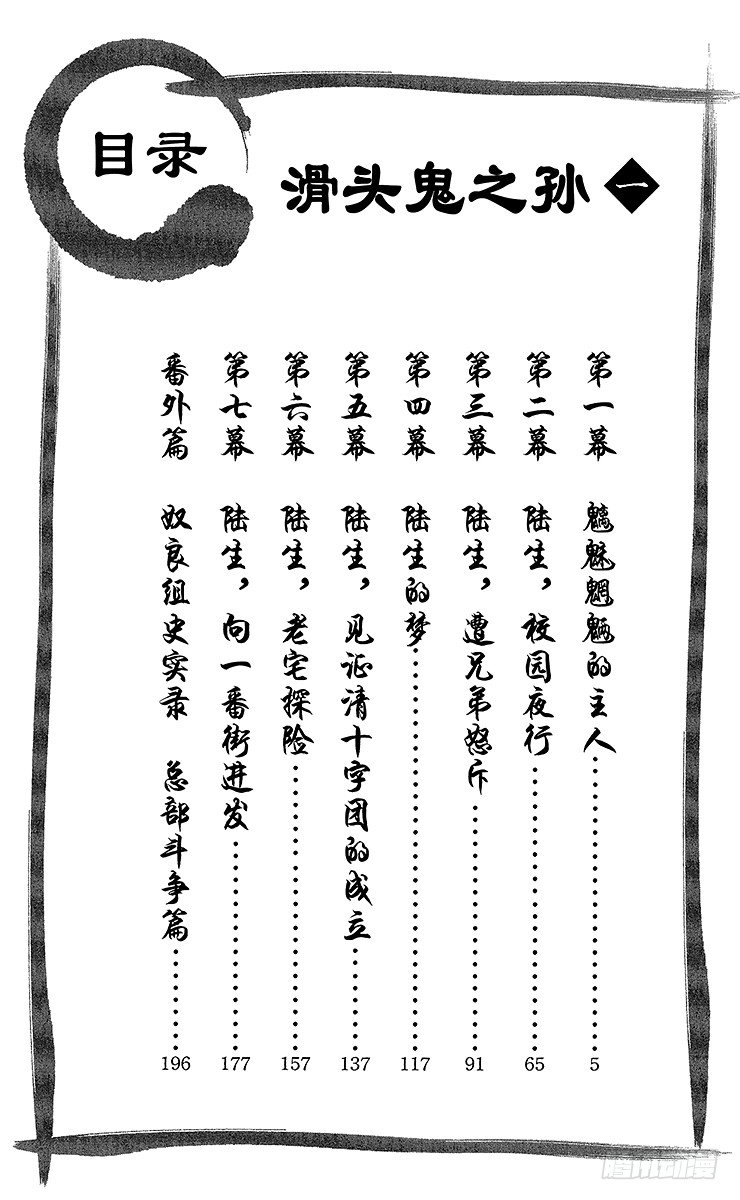 目录
滑头鬼之孙 一
第一幕 魑魅魍魉的主人……5
第二幕 陆生，校园夜行……65
第三幕 陆生，遭兄弟怒斥……91
第四幕 陆生的梦……117
第五幕 陆生，见证清十字团的成立……137
第六幕 陆生，老宅探险……157
第七幕 陆生，向一番街进发……177
番外篇 奴良组史实录 总部斗争篇……196
腾讯动漫